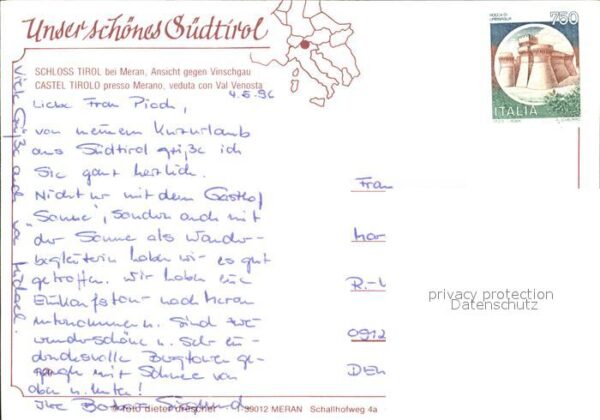 Unser schönes Südtirol
SCHLOSS TIROL bei Meran, Ansicht gegen Vinschgau
CASTEL TIROLO presso Merano, veduta con Val Venosta
750
ITALIA
4.5.96
Liebe Frau
von meinem Kurzurlaub
aus Südtirol grüße ich
Sie ganz herzlich.
Nicht nur mit dem Gasthof
"Sonne", sondern auch mit
der Sonne als Wander-
begleiterin haben wir es gut
getroffen. Wir haben eine
Einkaufstour nach Meran
unternommen u. sind zwei
wunderschöne u. sehr ein-
drucksvolle Bergtouren ge-
gangen mit Schnee von
oben u. unten!
Ihre
Viele Grüße auch von Michael.
Frau
Mar
R.-
0912
DEU
privacy protection
Datenschutz
foto dieter drescher I-39012 MERAN Schallhofweg 4a